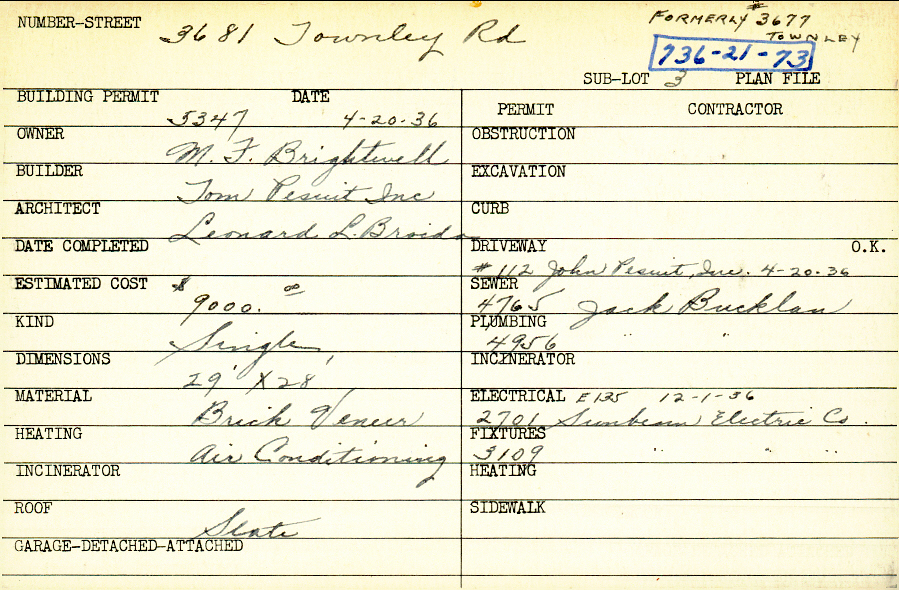 NUMBER-STREET 3681 Townley Rd
FORMERLY #3677
TOWNLEY
736-21-73
SUB-LOT 3 PLAN FILE
BUILDING PERMIT 5347 DATE 4-20-36
OWNER M. F. Brightwell
BUILDER Tom Pesuit Inc
ARCHITECT Leonard L. Broida
DATE COMPLETED
ESTIMATED COST $9000.00
KIND Single
DIMENSIONS 29' X 28'
MATERIAL Brick Veneer
HEATING Air Conditioning
INCINERATOR
ROOF Slate
GARAGE-DETACHED-ATTACHED
PERMIT CONTRACTOR
OBSTRUCTION
EXCAVATION
CURB
DRIVEWAY O.K.
#112 John Pesuit, Inc. 4-20-36
SEWER
4765 Jack Bucklan
PLUMBING
4956 " "
INCINERATOR
ELECTRICAL E135 12-1-36
2701 Sunbeam Electric Co.
FIXTURES
3109 " " "
HEATING
SIDEWALK